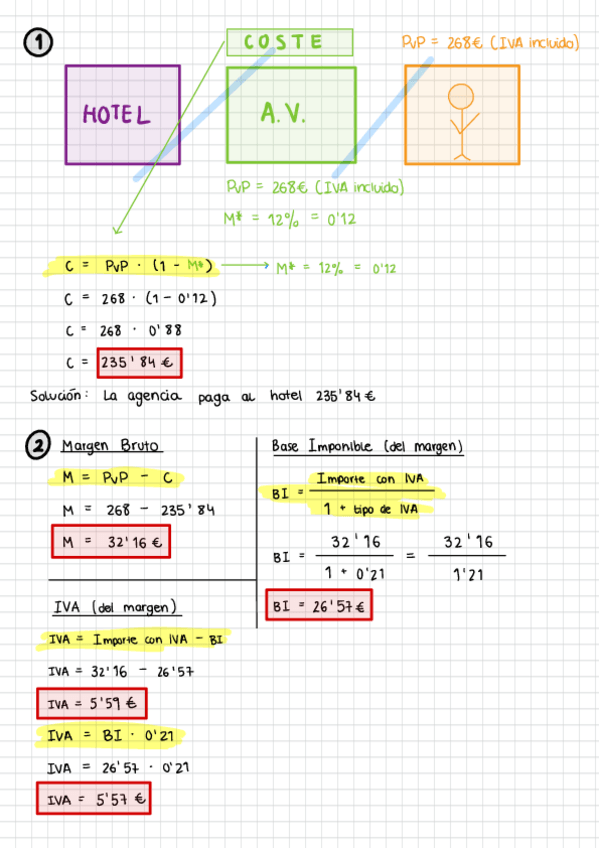 1
COSTE
PvP = 268€ (IVA incluido)
HOTEL
A.V.
PvP = 268€ (IVA incluido)
M* = 12% = 0'12
C = PvP · (1 - M*) → M* = 12% = 0'12
C = 268 · (1 - 0'12)
C = 268 · 0'88
C = 235'84 €
Solución: La agencia paga al hotel 235'84 €
2
Margen Bruto
M = PvP - C
M = 268 - 235'84
M = 32'16 €
Base Imponible (del margen)
BI = Importe con IVA
1 + tipo de IVA
BI = 32'16 = 32'16
1 + 0'21 1'21
BI = 26'57 €
IVA (del margen)
IVA = Importe con IVA - BI
IVA = 32'16 - 26'57
IVA = 5'59 €
IVA = BI · 0'21
IVA = 26'57 · 0'21
IVA = 5'57 €